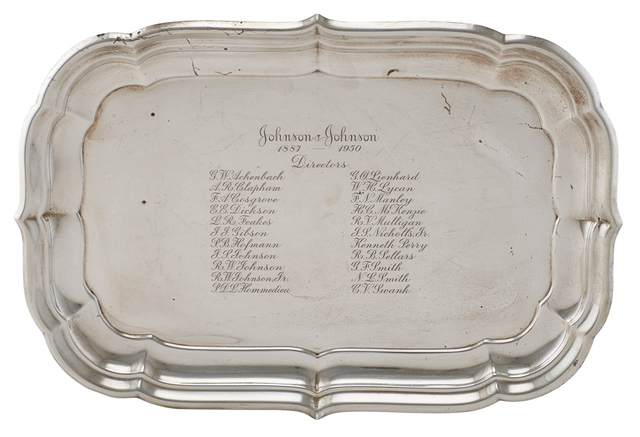 Johnson & Johnson
1887 — 1950
Directors
G.W. Achenbach
A.R. Clapham
F.A. Cosgrove
E.E. Dickson
J.J. Gibson
P.B. Hofmann
J.S. Johnson
R.W. Johnson
R.W. Johnson, Jr.
G.O. Lienhard
W.H. Lycan
F.N. Manley
H.C. McKenzie
R.V. Mulligan
J.S. Nicholls, Jr.
Kenneth Perry
R.B. Sellars
G.F. Smith
N.L. Smith
C.V. Swank